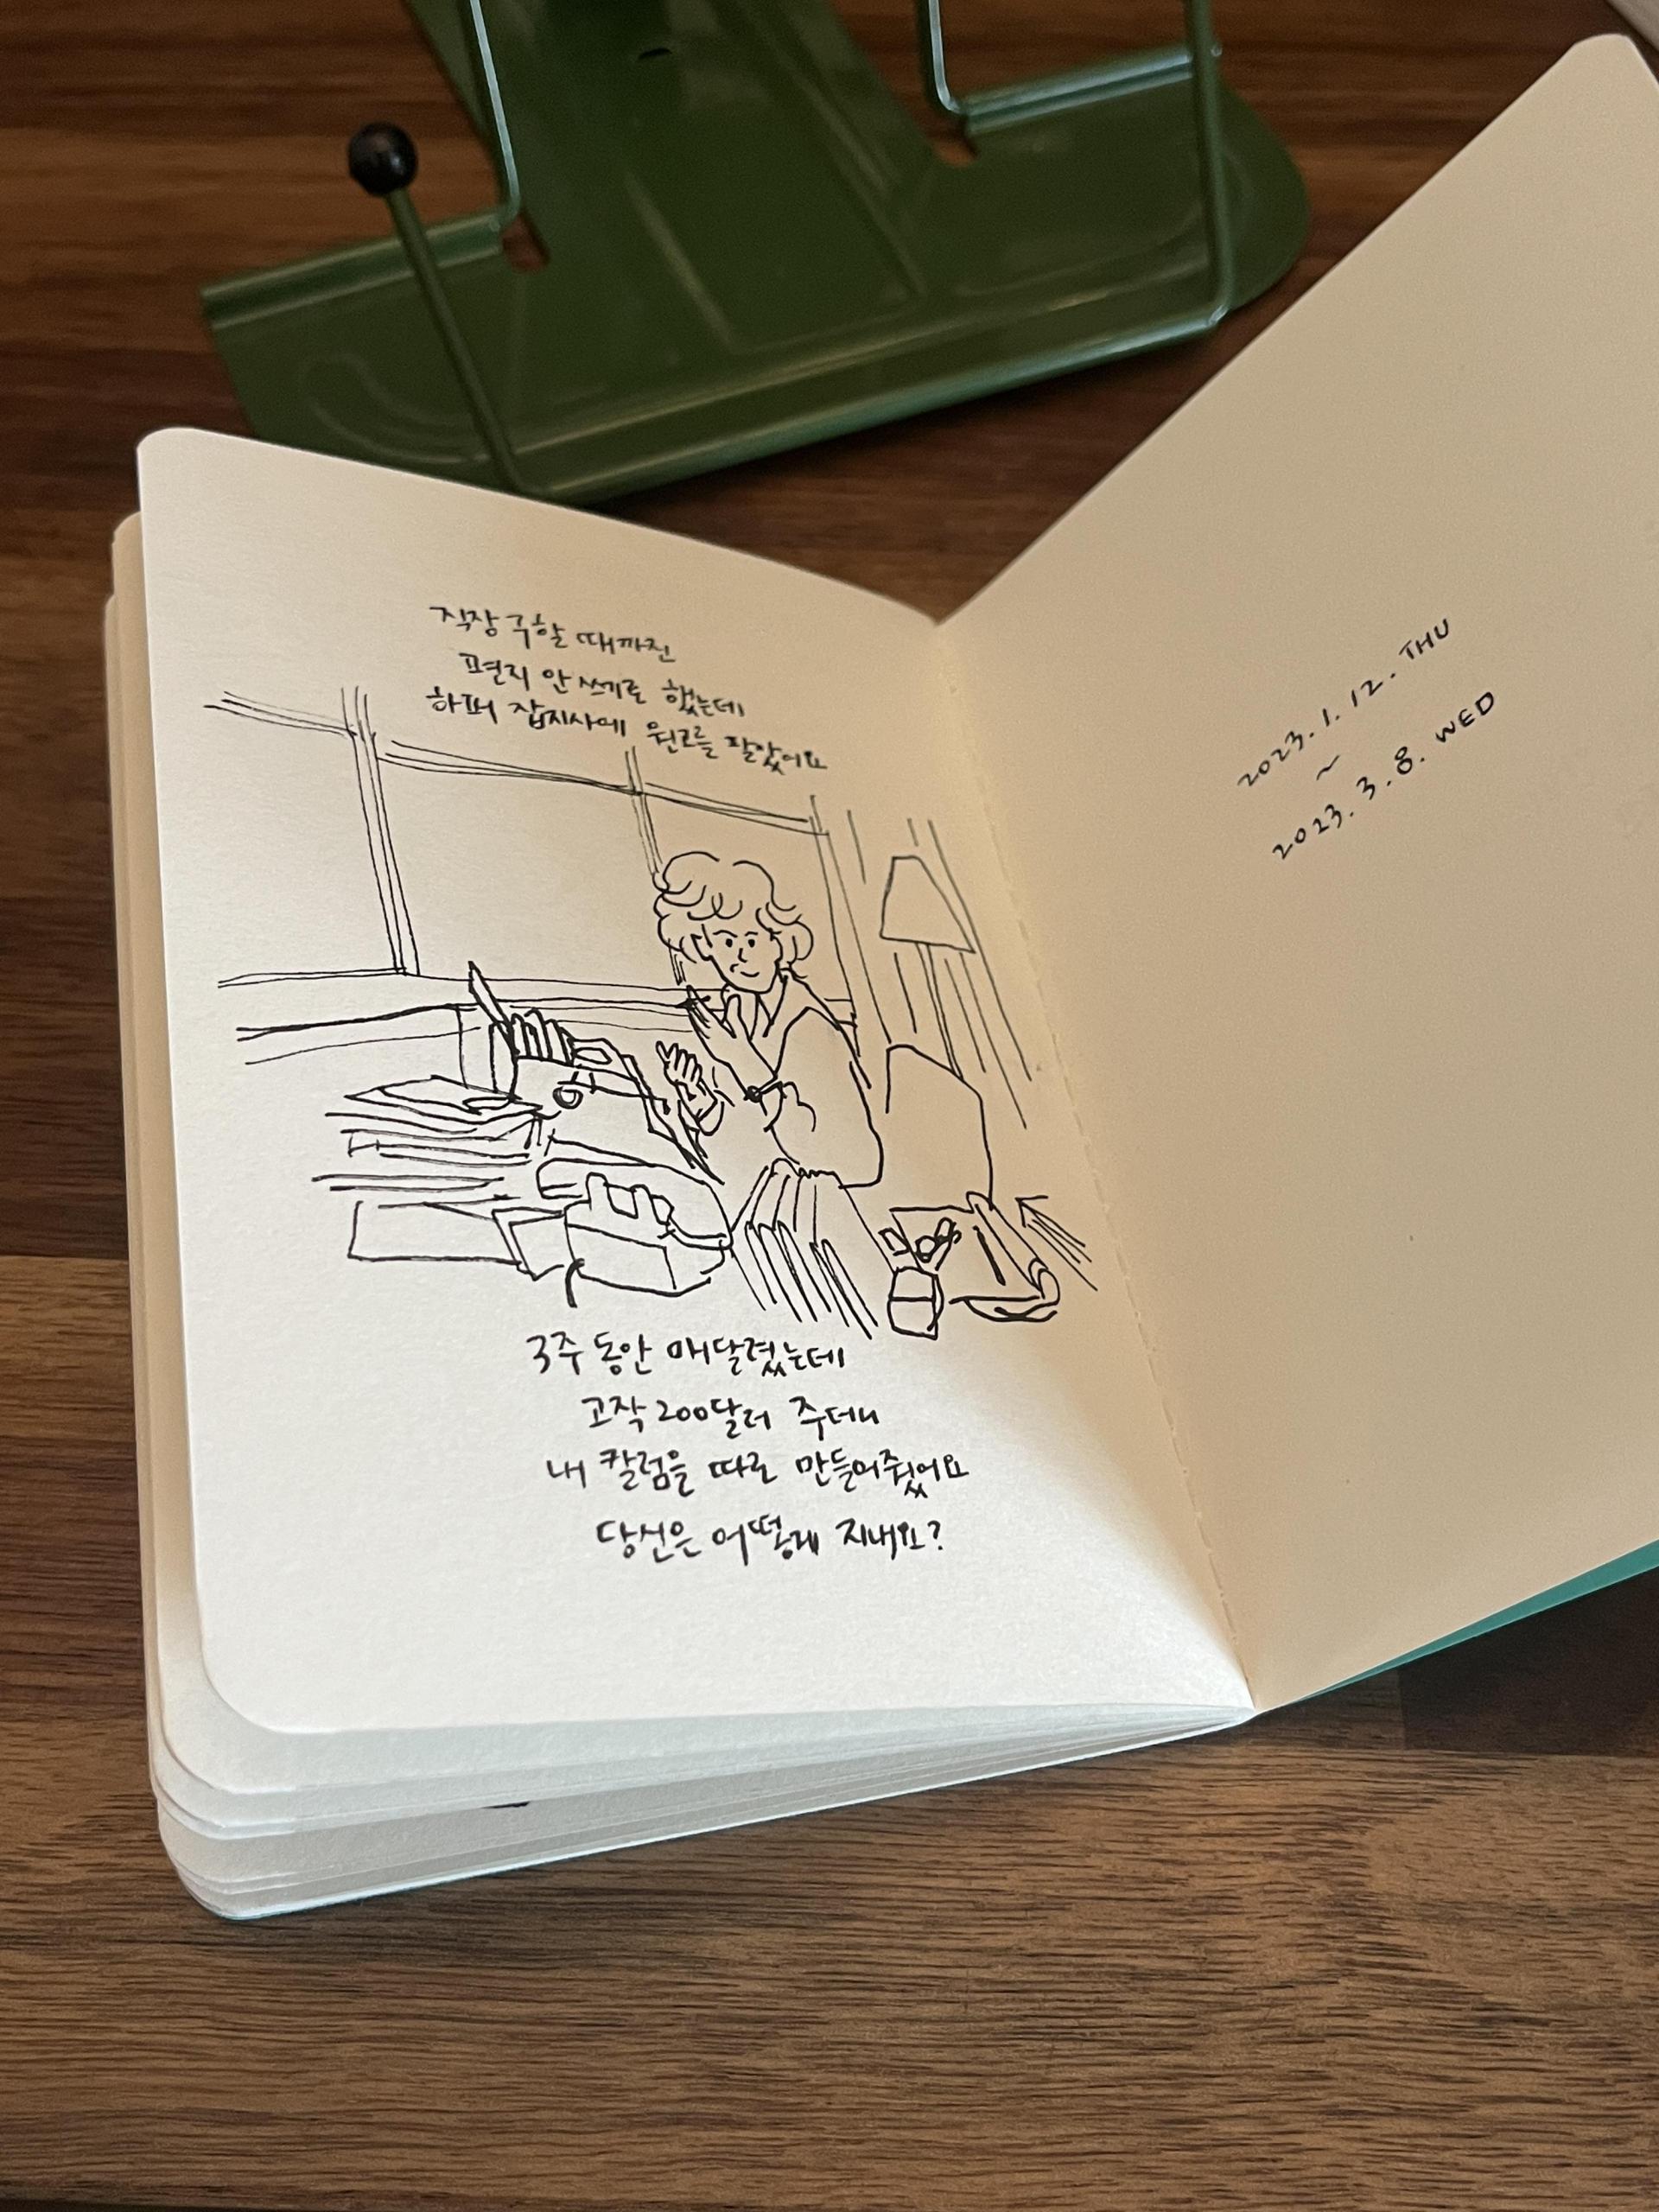 직장 구할 때까진
편지 안 쓰기로 했는데
하퍼 잡지사에 원고를 팔았어요
3주 동안 매달렸는데
고작 200달러 주더니
내 칼럼을 따로 만들어줬어요
당신은 어떻게 지내요?
2023. 1. 12. THU
~
2023. 3. 8. WED